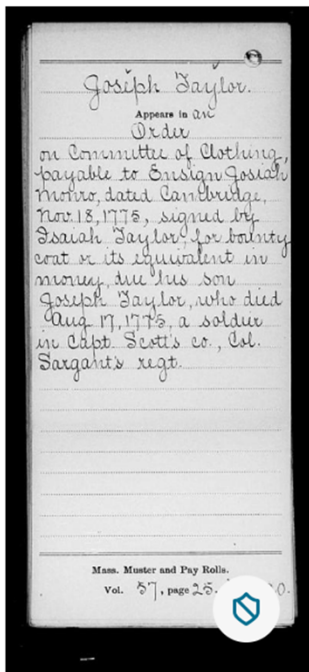 Joseph Taylor.
Appears in an
Order
on Committee of Clothing,
payable to Ensign Josiah
Monro, dated Cambridge,
Nov. 18, 1775, signed by
Isaiah Taylor, for bounty
coat or its equivalent in
money, due his son
Joseph Taylor, who died
Aug 17, 1775, a soldier
in Capt. Scott's co., Col.
Sargant's regt.
Mass. Muster and Pay Rolls.
Vol. 57, page 25. 0.